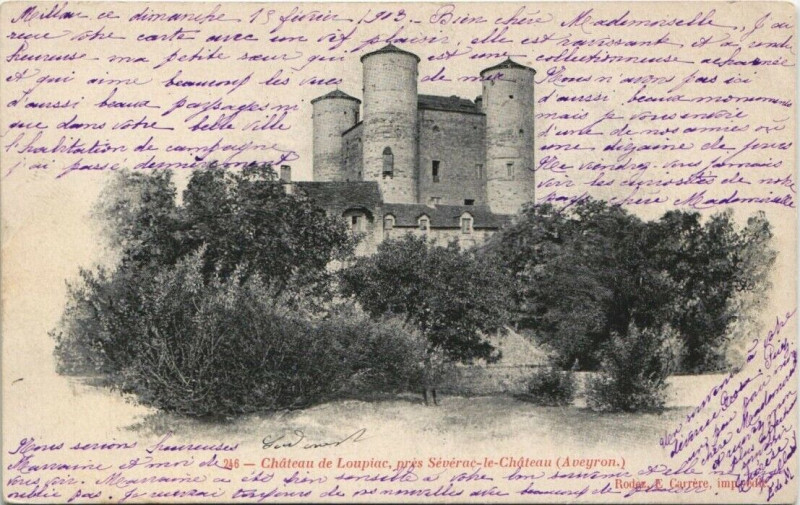 Millau ce dimanche 15 février 1903. Bien chère Mademoiselle, J'ai
reçu votre carte avec un vif plaisir, elle est ravissante et a rendu
heureuse ma petite sœur qui est une collectionneuse acharnée
et qui aime beaucoup les vues de
Nous n'avons pas ici
d'aussi beaux paysages ni d'aussi beaux monuments
que dans votre belle ville mais je vous envoie
l'habitation de campagne d'une de nos amies où
j'ai passé dernièrement une dizaine de jours
Ne viendrez-vous jamais
voir les curiosités de notre
pays chère Mademoiselle
Nous serions heureuses
Marraine et moi de
vous voir. Marraine a été bien sensible à votre bon souvenir et elle ne
oublie pas. Je recevrai toujours de vos nouvelles avec beaucoup de plaisir
246 — Château de Loupiac, près Sévérac-le-Château (Aveyron.)
Rodez, E. Carrère, imp.-édit.
souvenir à votre
chère Mademoiselle